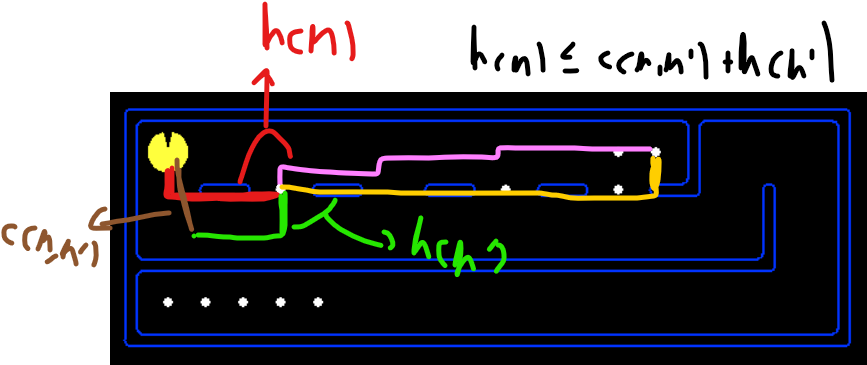 h(n)
h(n) ≤ c(n,n') + h(n')
c(n,n')
h(n')